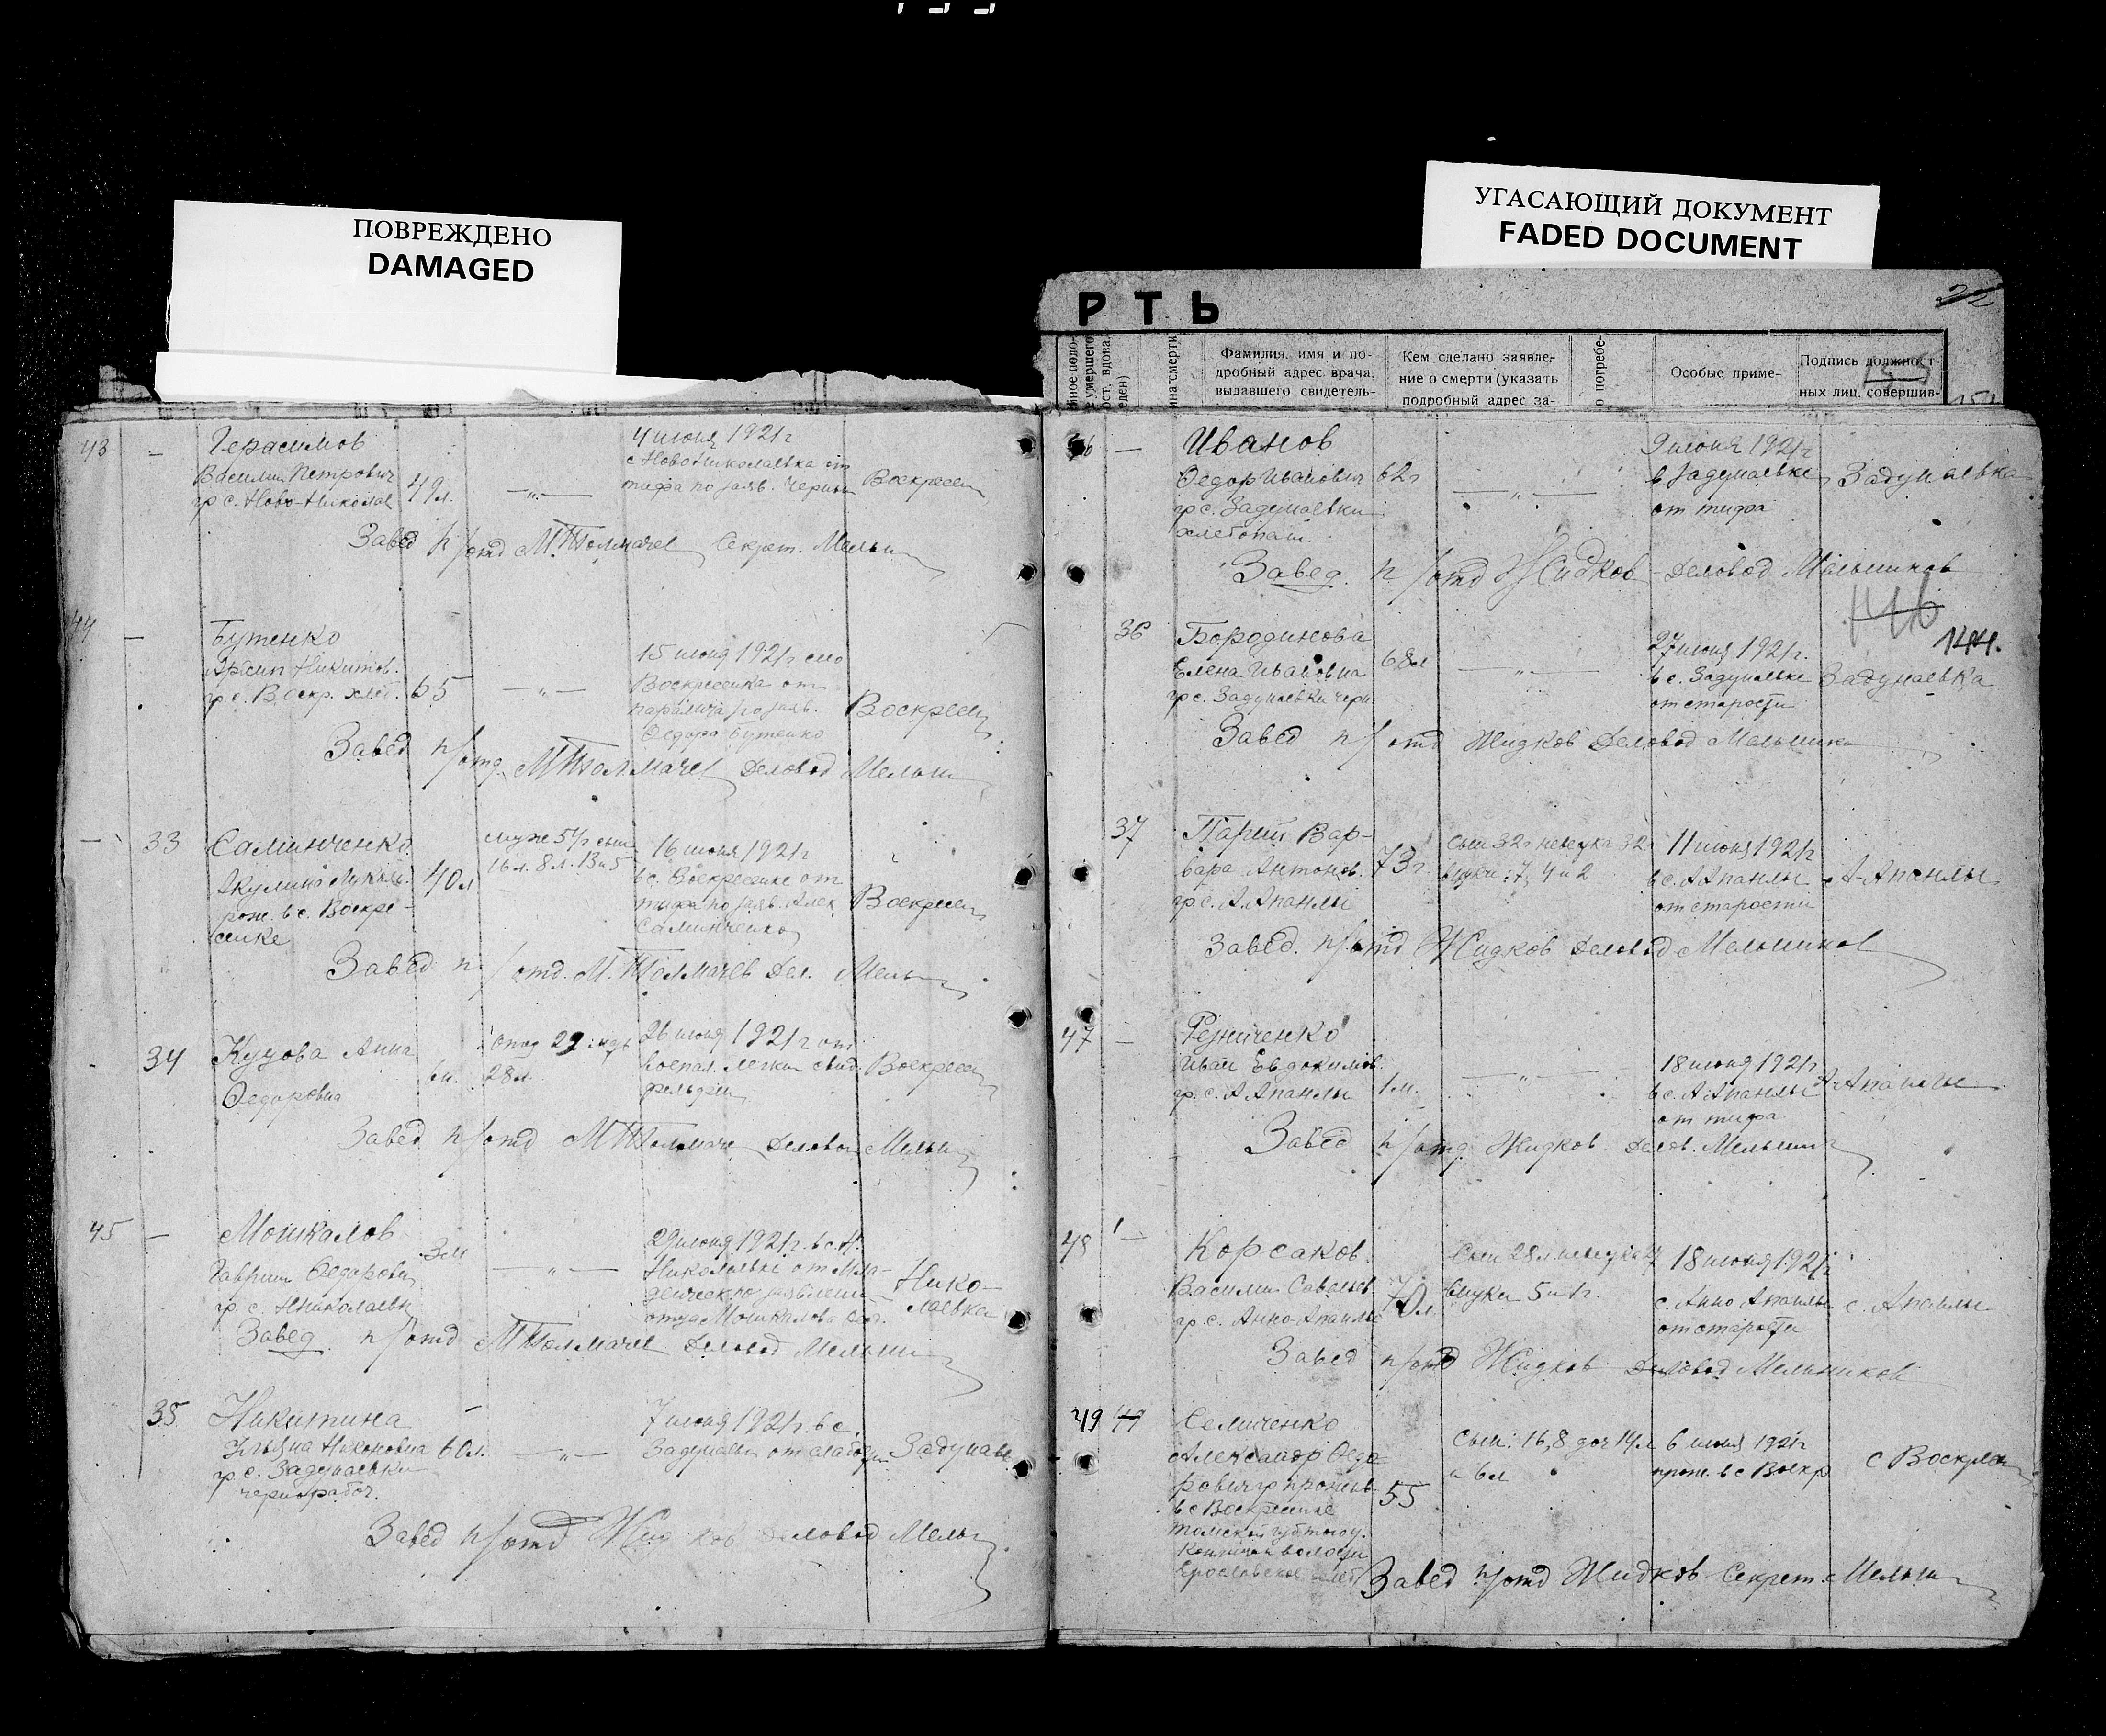 ПОВРЕЖДЕНО
DAMAGED
УГАСАЮЩИЙ ДОКУМЕНТ
FADED DOCUMENT
РТЬ
22
Фамилия, имя и по-
дробный адрес врача,
выдавшего свидетель-
Кем сделано заявле-
ние о смерти (указать
подробный адрес за-
о погребе-
Особые приме-
Подпись должност-
ных лиц, совершив-
43 —
Герасимов
Василий Петрович
гр с. Ново-Николае
49 л.
— „ —
4 июня 1921 г
с Ново Николаевка от
тифа по заяв.
Воскресен
Завед п/отд М. Толмачев Секрет. Мельн
44 —
Бутенко
Архип Никитов.
гр с. Воскр. хлеб.
65
— „ —
15 июня 1921 г
Воскресенка от
паралича по заяв.
Федора Бутенко
Воскресен
Завед п/отд М Толмачев Деловод Мельн
— 33
Салинченко
рож. в с. Воскре-
сенке
40 л
муж 51 г сын
16 л. 8 л. 13 и 5
16 июня 1921 г
в с. Воскресенке от
тифа по заяв. Алек
Салинченко
Воскресен
Завед п/отд. М. Толмачев Дел. Мельн
34
Куцова Анна
Федоровна
6 м.
28 л.
26 июня 1921 г от
воспал. легких свид.
фельдш
Воскресен
Завед п/отд М Толмаче Деловод Мельн
45 —
Мошкалов
Гавриил Федорович
гр. с. Николаевк
3 м
— „ —
29 июня 1921 г. в с. Н.
Николаевке от мла-
денческ. по заявлению
отца Мошкалова Фед.
Нико-
лаевка
Завед п/отд М Толмачев Деловод Мельни
35 —
Никитина
Ульяна Никоновна
гр с. Задунаевки
чернорабоч.
60 л.
— „ —
7 июня 1921 г. в с.
Задунаевк от слабости
Задунаев
Завед п/отд Жидков Деловод Мельн
46 —
Иванов
Федор Иванович
гр с. Задунаевки
хлебопаш.
62 г
— „ —
9 июня 1921 г
в Задунаевке
от тифа
Задунаевка
Завед. п/отд Жидков Деловод Мельников
144.
36
Бородинова
Елена Ивановна
гр с. Задунаевки черн
68 л
— „ —
27 июня 1921 г.
в с. Задунаевке
от старости
Задунаевка
Завед п/отд Жидков Деловод Мельников
37
Парий Вар-
вара Антонов.
гр. с. А. Апанлы
73 г.
сын 32 г невестка 32
внуки: 7, 4 и 2
11 июня 1921 г
в с. А Апанлы
от старости
А-Апанлы
Завед. п/отд Жидков Деловод Мельников
47 —
Резниченко
Иван Евдокимов.
гр. с. А Апанлы
1 м.
— „ —
18 июня 1921 г
в с. А Апанлы
от тифа
А-Апанлы
Завед п/отд Жидков Делов. Мельник
48 —
Корсаков
Василий Савельев
гр. с. Анно Апанлы
70 л.
Сын 28 л невестка 27
внуки 5 и 1 г.
18 июня 1921 г
с. Анно Апанлы
от старости
с. Апанлы
Завед п/отд Жидков Деловод Мельников
49
Селиченко
Александр Федо-
рович гр прожив.
в с Воскресенке
55
Сын: 16, 8 доч 14 л
и 6 л
6 июня 1921 г
прож. в с Воскр.
с Воскресен
Завед п/отд Жидков Секрет. Мельни